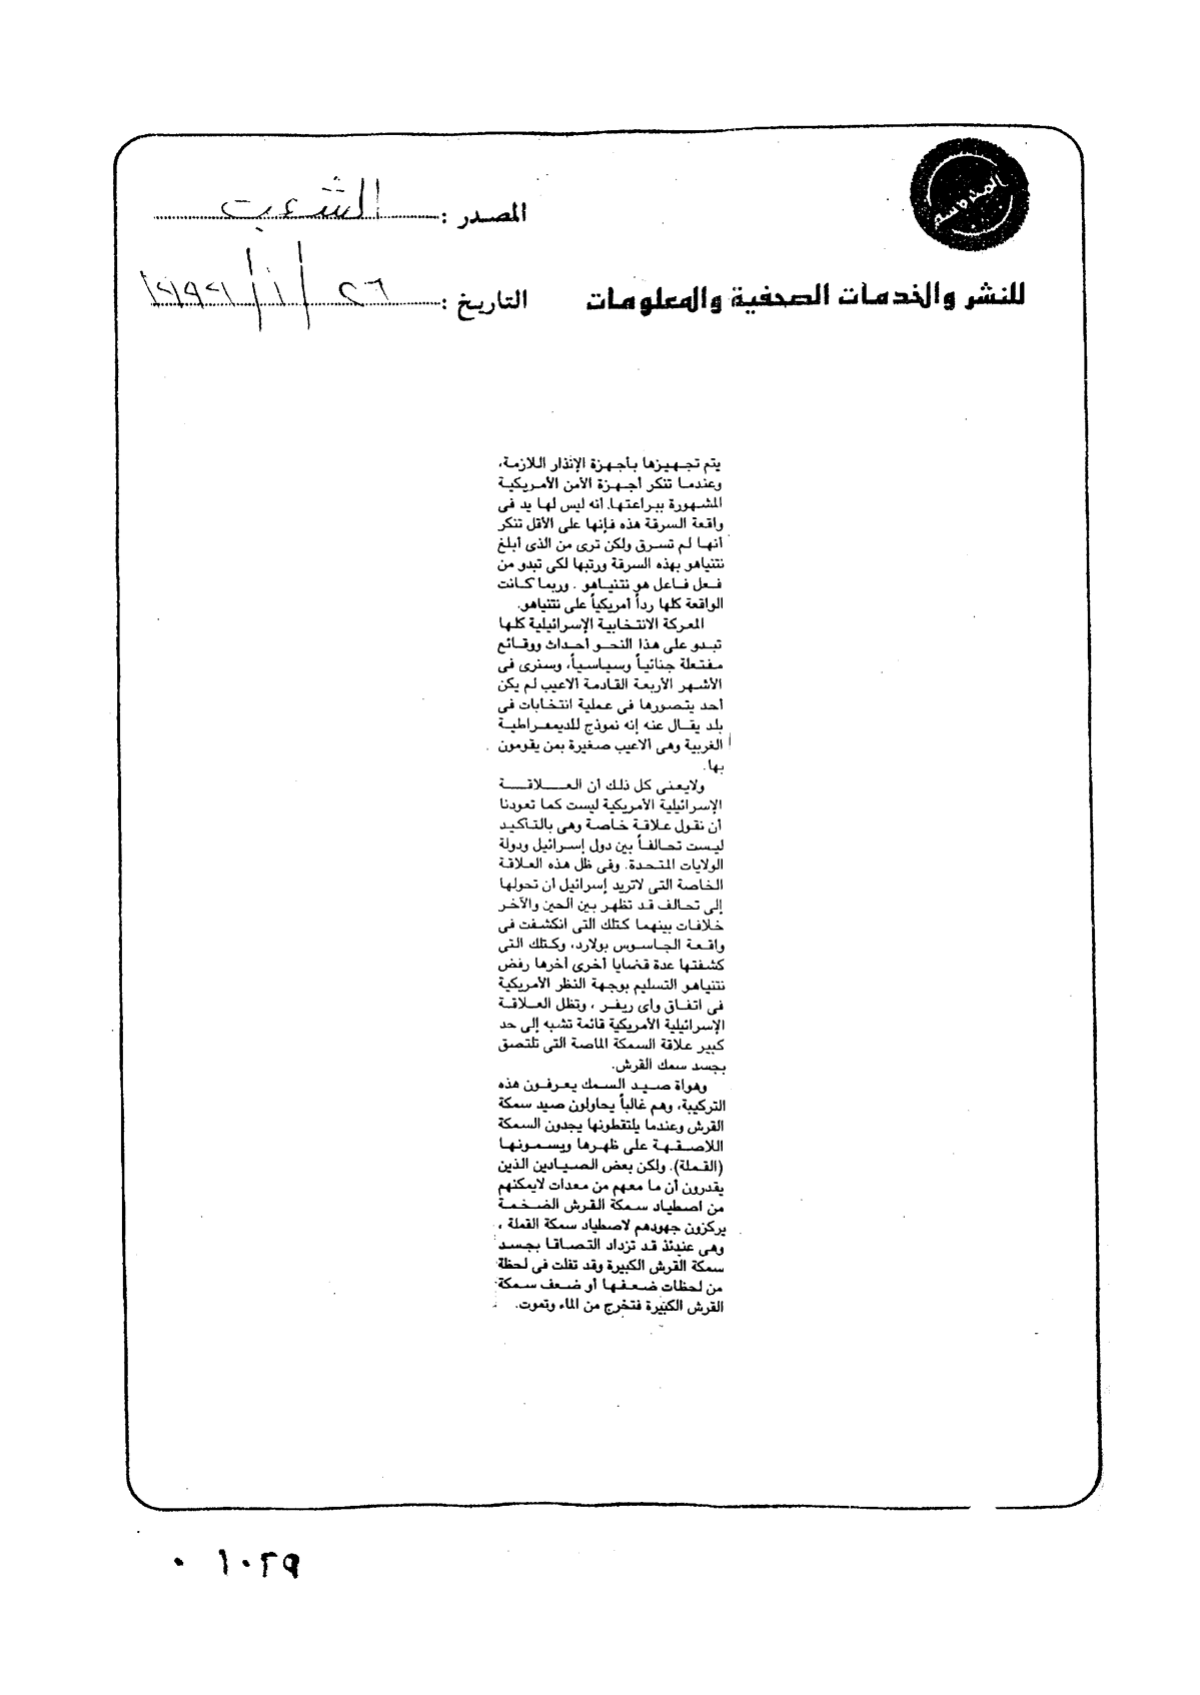 المصدر : الشعب
للنشر والخدمات الصحفية والمعلومات
التاريخ : ٢٦ / ١ /
يتم تجهيزها بأجهزة الإنذار اللازمة،
وعندما تنكر أجهزة الأمن الأمريكية
المشهورة ببراعتها، انه ليس لها يد فى
واقعة السرقة هذه فإنها على الأقل تنكر
أنها لم تسرق ولكن ترى من الذى أبلغ
نتنياهو بهذه السرقة ورتبها لكى تبدو من
فعل فاعل هو نتنياهو . وربما كانت
الواقعة كلها رداً أمريكياً على نتنياهو.
المعركة الانتخابية الإسرائيلية كلها
تبدو على هذا النحو أحداث ووقائع
مفتعلة جنائياً وسياسياً، وسنرى فى
الأشهر الأربعة القادمة الاعيب لم يكن
أحد يتصورها فى عملية انتخابات فى
بلد يقال عنه إنه نموذج للديمقراطية
الغربية وهى الاعيب صغيرة بمن يقومون
بها.
ولايعنى كل ذلك أن العلاقة
الإسرائيلية الأمريكية ليست كما تعودنا
أن نقول علاقة خاصة وهى بالتأكيد
ليست تحالفاً بين دول إسرائيل ودولة
الولايات المتحدة. وفى ظل هذه العلاقة
الخاصة التى لاتريد إسرائيل ان تحولها
إلى تحالف قد تظهر بين الحين والآخر
خلافات بينهما كتلك التى انكشفت فى
واقعة الجاسوس بولارد، وكتلك التى
كشفتها عدة قضايا أخرى أخرها رفض
نتنياهو التسليم بوجهة النظر الأمريكية
فى اتفاق واى ريفر ، وتظل العلاقة
الإسرائيلية الأمريكية قائمة تشبه إلى حد
كبير علاقة السمكة الماصة التى تلتصق
بجسد سمك القرش.
وهواة صيد السمك يعرفون هذه
التركيبة، وهم غالباً يحاولون صيد سمكة
القرش وعندما يلتقطونها يجدون السمكة
اللاصقهة على ظهرها ويسمونها
(القملة). ولكن بعض الصيادين الذين
يقدرون أن ما معهم من معدات لايمكنهم
من اصطياد سمكة القرش الضخمة
يركزون جهودهم لاصطياد سمكة القملة ،
وهى عندئذ قد تزداد التصاقا بجسد
سمكة القرش الكبيرة وقد تفلت فى لحظة
من لحظات ضعفها أو ضعف سمكة
القرش الكبيرة فتخرج من الماء وتموت.
٠١٠٢٩